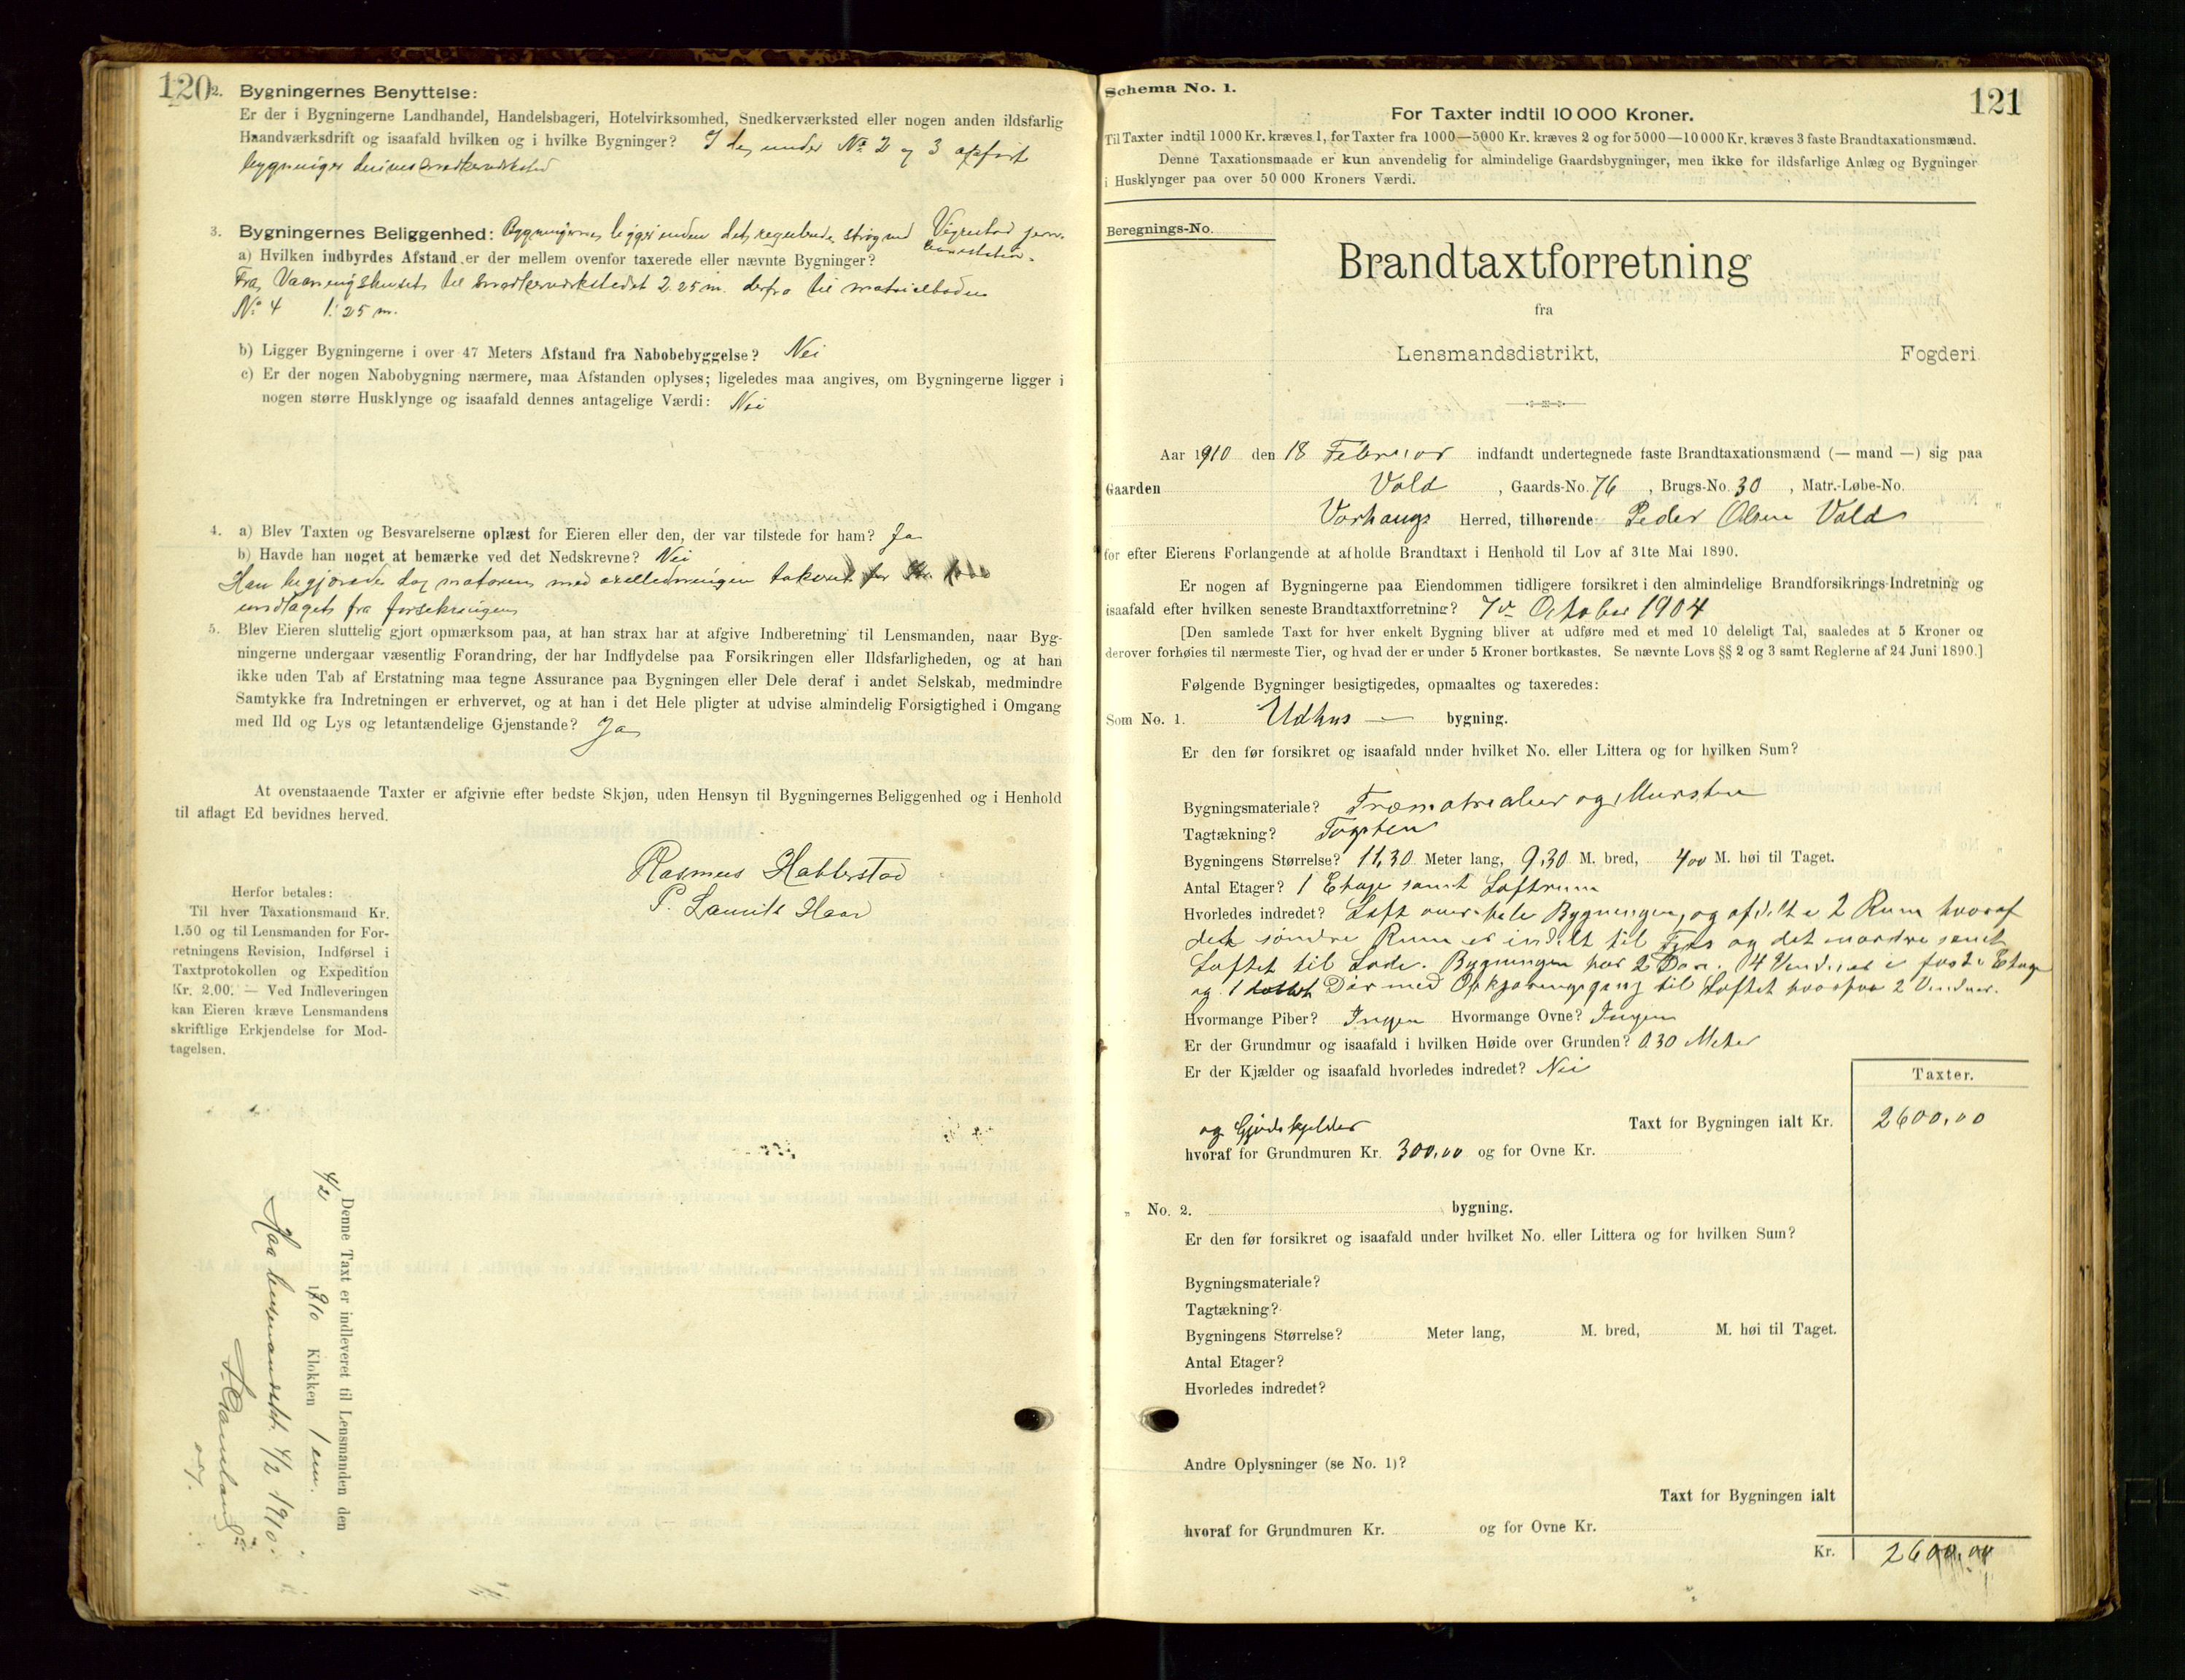 120
2. Bygningernes Benyttelse:
Er der i Bygningerne Landhandel, Handelsbageri, Hotelvirksomhed, Snedkerværksted eller nogen anden ildsfarlig
Haandværksdrift og isaafald hvilken og i hvilke Bygninger? I de under No 2 og 3 opførte
bygninger drives snedkerverksted
3. Bygningernes Beliggenhed: Bygningerne ligger inden det regulerede strøg ved Vigrestad jern-
banestation.
a) Hvilken indbyrdes Afstand er der mellem ovenfor taxerede eller nævnte Bygninger?
Fra Vaaningshuset til snedkerverkstedet 2.25 m. derfra til matrialboden
No 4 1.25 m.
b) Ligger Bygningerne i over 47 Meters Afstand fra Nabobebyggelse? Nei
c) Er der nogen Nabobygning nærmere, maa Afstanden oplyses; ligeledes maa angives, om Bygningerne ligger i
nogen større Husklynge og isaafald dennes antagelige Værdi: Nei
4. a) Blev Taxten og Besvarelserne oplæst for Eieren eller den, der var tilstede for ham? Ja
b) Havde han noget at bemærke ved det Nedskrevne? Nei
Han begjærede dog motoren med axelledningen takseret for Kr.
undtaget fra forsikringen
5. Blev Eieren sluttelig gjort opmærksom paa, at han strax har at afgive Indberetning til Lensmanden, naar Byg-
ningerne undergaar væsentlig Forandring, der har Indflydelse paa Forsikringen eller Ildsfarligheden, og at han
ikke uden Tab af Erstatning maa tegne Assurance paa Bygningen eller Dele deraf i andet Selskab, medmindre
Samtykke fra Indretningen er erhvervet, og at han i det Hele pligter at udvise almindelig Forsigtighed i Omgang
med Ild og Lys og letantændelige Gjenstande? Ja
At ovenstaaende Taxter er afgivne efter bedste Skjøn, uden Hensyn til Bygningernes Beliggenhed og i Henhold
til aflagt Ed bevidnes herved.
Rasmus Habberstad
P. Lauritz Haar
Herfor betales:
Til hver Taxationsmand Kr.
1.50 og til Lensmanden for For-
retningens Revision, Indførsel i
Taxtprotokollen og Expedition
Kr. 2.00. — Ved Indleveringen
kan Eieren kræve Lensmandens
skriftlige Erkjendelse for Mod-
tagelsen.
Denne Taxt er indleveret til Lensmanden den
4/2 1910 Klokken 1 em.
Haa lensmandsktr. 4/2 1910.
121
Schema No. 1.
For Taxter indtil 10 000 Kroner.
Til Taxter indtil 1000 Kr. kræves 1, for Taxter fra 1000—5000 Kr. kræves 2 og for 5000—10 000 Kr. kræves 3 faste Brandtaxationsmænd.
Denne Taxationsmaade er kun anvendelig for almindelige Gaardsbygninger, men ikke for ildsfarlige Anlæg og Bygninger
i Husklynger paa over 50 000 Kroners Værdi.
Beregnings-No.
Brandtaxtforretning
fra
Lensmandsdistrikt, Fogderi
Aar 1910 den 18 Februar indfandt undertegnede faste Brandtaxationsmænd (— mand —) sig paa
Gaarden Vold, Gaards-No. 76, Brugs-No. 30, Matr.-Løbe-No.
Varhaugs Herred, tilhørende Peder Olsen Vold
for efter Eierens Forlangende at afholde Brandtaxt i Henhold til Lov af 31te Mai 1890.
Er nogen af Bygningerne paa Eiendommen tidligere forsikret i den almindelige Brandforsikrings-Indretning og
isaafald efter hvilken seneste Brandtaxtforretning? 7de October 1904
[Den samlede Taxt for hver enkelt Bygning bliver at udføre med et med 10 deleligt Tal, saaledes at 5 Kroner og
derover forhøies til nærmeste Tier, og hvad der er under 5 Kroner bortkastes. Se nævnte Lovs §§ 2 og 3 samt Reglerne af 24 Juni 1890.]
Følgende Bygninger besigtigedes, opmaaltes og taxeredes:
Som No. 1. Udhus — bygning.
Er den før forsikret og isaafald under hvilket No. eller Littera og for hvilken Sum?
Bygningsmateriale? Træmatrialier og Mursten
Tagtækning? Tagsten
Bygningens Størrelse? 11,30 Meter lang, 9,30 M. bred, 400 M. høi til Taget.
Antal Etager? 1 Etage samt Loftrum
Hvorledes indredet? Loft over hele Bygningen, og afdelt i 2 Rum hvoraf
det søndre Rum er indelt til Fjøs og det nordre samt
Loftet til Lade. Bygningen har 2 Døre. 4 Vinduer i første Etage
og 1 Dør med Opkjøringsgang til Loftet hvorpaa 2 Vinduer.
Hvormange Piber? Ingen Hvormange Ovne? Ingen
Er der Grundmur og isaafald i hvilken Høide over Grunden? 0.30 Meter
Er der Kjælder og isaafald hvorledes indredet? Nei
Taxter.
Taxt for Bygningen ialt Kr. 2600,00
og Gjødskjelder
hvoraf for Grundmuren Kr. 300,00 og for Ovne Kr.
„ No. 2. bygning.
Er den før forsikret og isaafald under hvilket No. eller Littera og for hvilken Sum?
Bygningsmateriale?
Tagtækning?
Bygningens Størrelse? Meter lang, M. bred, M. høi til Taget.
Antal Etager?
Hvorledes indredet?
Andre Oplysninger (se No. 1)?
Taxt for Bygningen ialt
hvoraf for Grundmuren Kr. og for Ovne Kr.
Kr. 2600,00